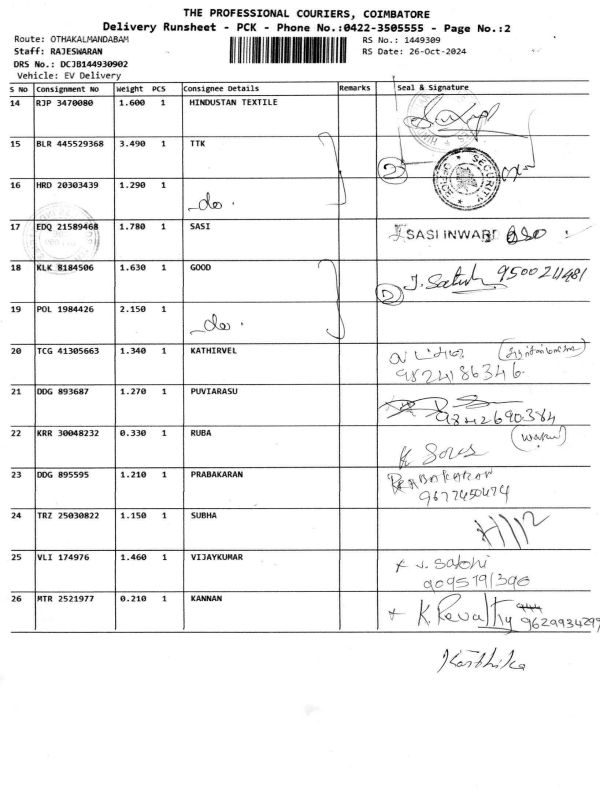 THE PROFESSIONAL COURIERS, COIMBATORE
Delivery Runsheet - PCK - Phone No.:0422-3505555 - Page No.:2
Route: OTHAKALMANDABAM RS No.: 1449309
Staff: RAJESWARAN RS Date: 26-Oct-2024
DRS No.: DCJB144930902
Vehicle: EV Delivery
S No Consignment No Weight PCS Consignee Details Remarks Seal & Signature
14 RJP 3470080 1.600 1 HINDUSTAN TEXTILE
15 BLR 445529368 3.490 1 TTK
SECURITY OFFICE
16 HRD 20303439 1.290 1 do.
17 EDQ 21589468 1.780 1 SASI SASI INWARD
18 KLK 8184506 1.630 1 GOOD
19 POL 1984426 2.150 1 do.
20 TCG 41305663 1.340 1 KATHIRVEL
9824186346
21 DDG 893687 1.270 1 PUVIARASU
9842690384
22 KRR 30048232 0.330 1 RUBA
23 DDG 895595 1.210 1 PRABAKARAN PRABAKARAN
9677450474
24 TRZ 25030822 1.150 1 SUBHA
25 VLI 174976 1.460 1 VIJAYKUMAR
9095791396
26 MTR 2521977 0.210 1 KANNAN K. Revathy
9629934299
Karthika